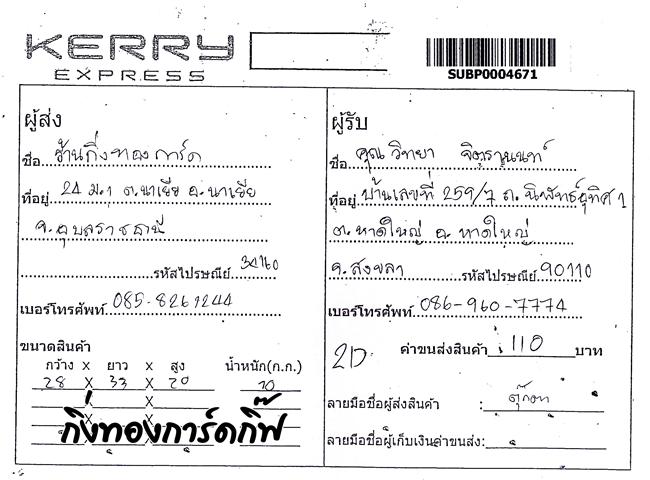 KERRY
EXPRESS
SUBP0004671
ผู้ส่ง
ชื่อ ร้านกิ่งทองการ์ด
ที่อยู่ 24 ม.1 ต.นาเยีย อ.นาเยีย
จ.อุบลราชธานี
รหัสไปรษณีย์ 34160
เบอร์โทรศัพท์ 085-8261244
ขนาดสินค้า
กว้าง x ยาว x สูง น้ำหนัก(ก.ก.)
28 X 33 X 20 10
X X
กิ่งทองการ์ดกิ๊ฟ
ผู้รับ
ชื่อ คุณวิทยา จิตรานนท์
ที่อยู่ บ้านเลขที่ 259/7 ถ.นิพัทธ์อุทิศ 1
ต.หาดใหญ่ อ.หาดใหญ่
จ.สงขลา รหัสไปรษณีย์ 90110
เบอร์โทรศัพท์ 086-960-7774
2D ค่าขนส่งสินค้า 110 บาท
ลายมือชื่อผู้ส่งสินค้า :
ลายมือชื่อผู้เก็บเงินค่าขนส่ง: